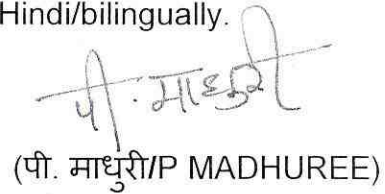 Hindi/bilingually.
पी. माधुरी
(पी. माधुरी/P MADHUREE)